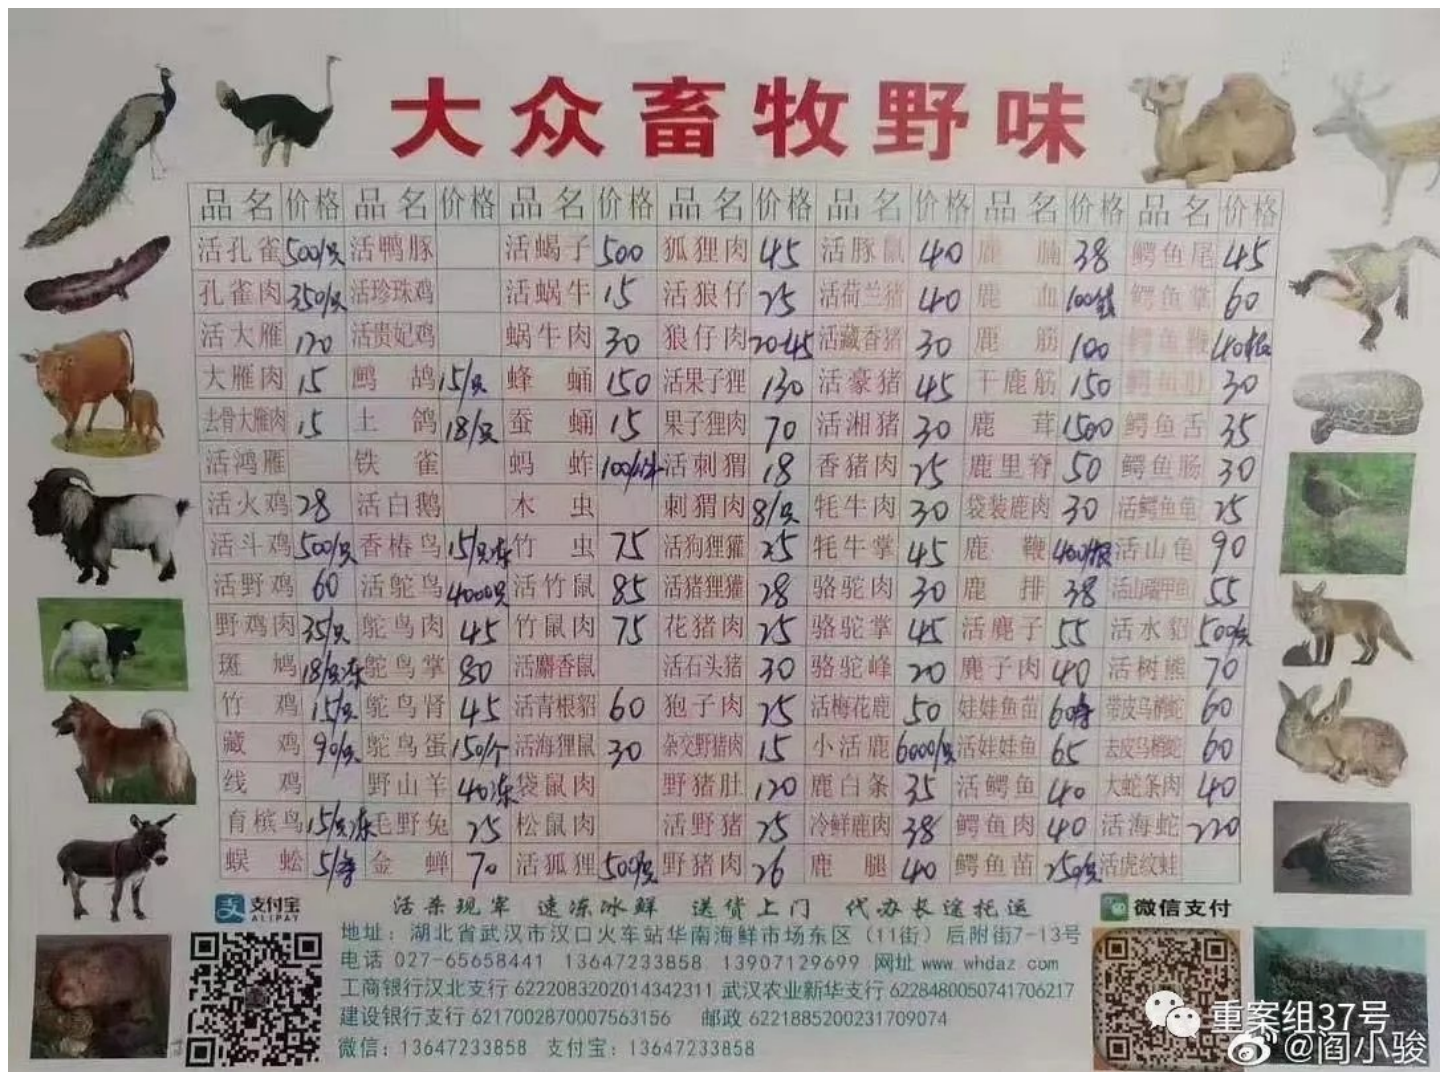 大众畜牧野味
品名 价格 品名 价格 品名 价格 品名 价格 品名 价格 品名 价格 品名 价格
活孔雀 500/只 活鸭豚 活蝎子 500 狐狸肉 45 活豚鼠 40 鹿腩 38 鳄鱼尾 45
孔雀肉 350/只 活珍珠鸡 活蜗牛 15 活狼仔 25 活荷兰猪 40 鹿血 鳄鱼掌 60
活大雁 120 活贵妃鸡 蜗牛肉 30 狼仔肉 活藏香猪 30 鹿筋 100 鳄鱼鞭
大雁肉 15 鹧鸪 15/只 蜂蛹 150 活果子狸 130 活豪猪 45 干鹿筋 150 鳄鱼肚 30
去骨大雁肉 15 土鸽 18/只 蚕蛹 15 果子狸肉 70 活湘猪 30 鹿茸 1500 鳄鱼舌 35
活鸿雁 铁雀 蚂蚱 活刺猬 18 香猪肉 25 鹿里脊 50 鳄鱼肠 30
活火鸡 28 活白鹅 木虫 刺猬肉 8/只 牦牛肉 30 袋装鹿肉 30 活鳄鱼龟 25
活斗鸡 500/只 香椿鸟 15/只冻 竹虫 75 活狗狸獾 25 牦牛掌 45 鹿鞭 400/根 活山龟 90
活野鸡 60 活鸵鸟 4000只 活竹鼠 85 活猪狸獾 28 骆驼肉 30 鹿排 38 活山瑞甲鱼 55
野鸡肉 35/只 鸵鸟肉 45 竹鼠肉 75 花猪肉 25 骆驼掌 45 活麂子 55 活水貂 500/只
斑鸠 18/只冻 鸵鸟掌 80 活麝香鼠 活石头猪 30 骆驼峰 20 麂子肉 40 活树熊 70
竹鸡 15/只 鸵鸟肾 45 活青根貂 60 狍子肉 25 活梅花鹿 50 娃娃鱼苗 带皮乌梢蛇 60
藏鸡 90/只 鸵鸟蛋 150/个 活海狸鼠 30 杂交野猪肉 15 小活鹿 6000/只 活娃娃鱼 65 去皮乌梢蛇 60
线鸡 野山羊 40冻 袋鼠肉 野猪肚 120 鹿白条 35 活鳄鱼 40 大蛇条肉 40
育槟鸟 15/只冻 毛野兔 25 松鼠肉 活野猪 25 冷鲜鹿肉 38 鳄鱼肉 40 活海蛇 220
蜈蚣 金蝉 70 活狐狸 500只 野猪肉 26 鹿腿 40 鳄鱼苗 250/只 活虎纹蛙
支付宝 ALIPAY 活杀现宰 速冻冰鲜 送货上门 代办长途托运 微信支付
地址：湖北省武汉市汉口火车站华南海鲜市场东区（11街）后附街7-13号
电话 027-65658441 13647233858 13907129699 网址 www.whdaz.com
工商银行汉北支行 6222083202014342311 武汉农业新华支行 6228480050741706217
建设银行支行 6217002870007563156 邮政 6221885200231709074
微信：13647233858 支付宝：13647233858
重案组37号
@阎小骏